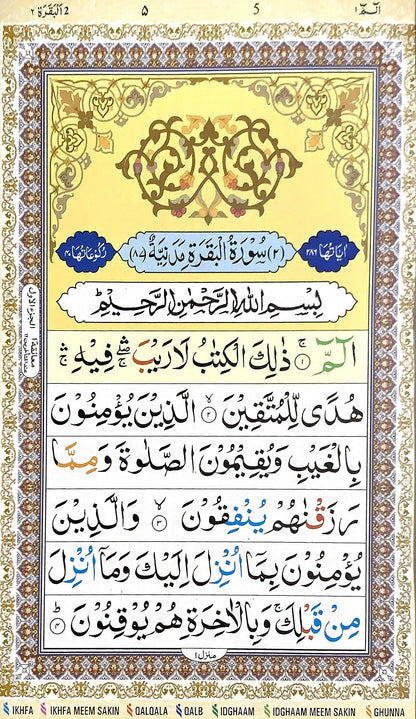 2 اَلْبَقَرَة ٢
۵
5
الٓمّٓ ١
اٰيَاتُهَا ٢٨٦
(٢) سُوْرَةُ الْبَقَرَةِ مَدَنِيَّةٌ (٨٧)
رُكُوْعَاتُهَا ٤٠
بِسْمِ اللّٰهِ الرَّحْمٰنِ الرَّحِيْمِ
الٓمّٓ ۚ ١ ذٰلِكَ الْكِتٰبُ لَا رَيْبَ ۛ فِيْهِ ۛ
هُدًى لِّلْمُتَّقِيْنَ ۙ ٢ الَّذِيْنَ يُؤْمِنُوْنَ
بِالْغَيْبِ وَيُقِيْمُوْنَ الصَّلٰوةَ وَمِمَّا
رَزَقْنٰهُمْ يُنْفِقُوْنَ ۙ ٣ وَالَّذِيْنَ
يُؤْمِنُوْنَ بِمَآ اُنْزِلَ اِلَيْكَ وَمَآ اُنْزِلَ
مِنْ قَبْلِكَ ۚ وَبِالْاٰخِرَةِ هُمْ يُوْقِنُوْنَ ؕ ٤
الجزء الاول
معانقة ١
منزل ١
IKHFA
IKHFA MEEM SAKIN
QALQALA
QALB
IDGHAAM
IDGHAAM MEEM SAKIN
GHUNNA